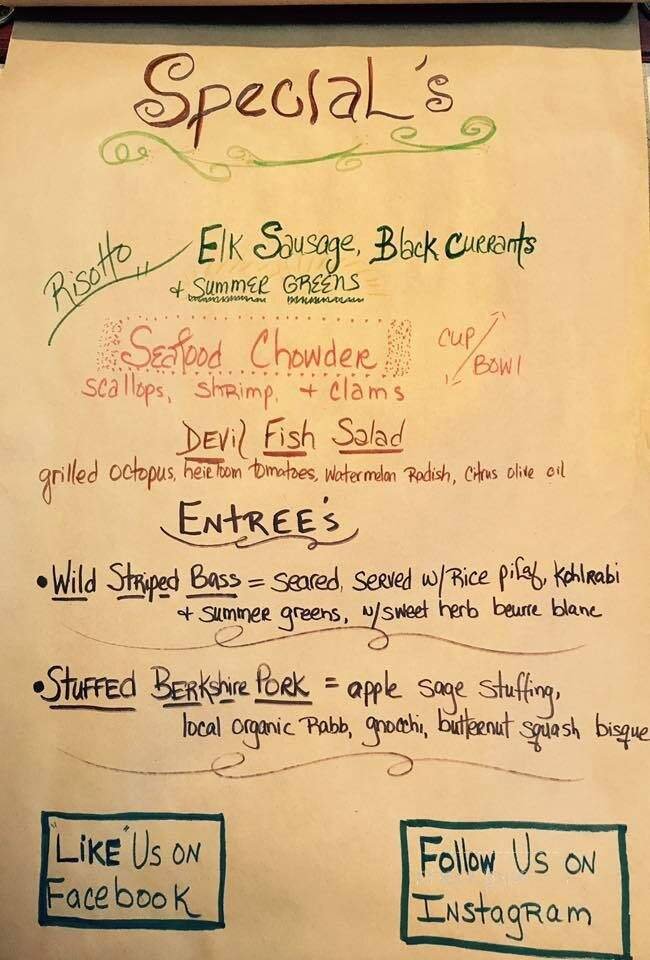 Special's
Risotto,, Elk Sausage, Black Currants
+ Summer Greens
Seafood Chowder
Cup / Bowl
scallops, shrimp, + clams
Devil Fish Salad
grilled octopus, heirloom tomatoes, watermelon Radish, Citrus olive oil
Entree's
• Wild Striped Bass = seared, served w/Rice pilaf, Kohlrabi
+ summer greens, w/sweet herb beurre blanc
• Stuffed Berkshire Pork = apple sage stuffing,
local organic Rabb, gnocchi, butternut squash bisque
"Like" Us on
Facebook
Follow Us on
Instagram